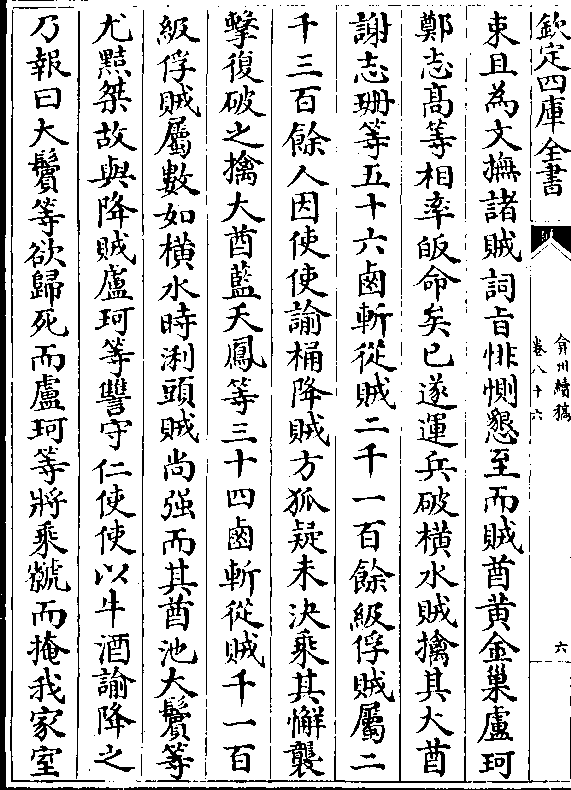 欽定四庫全書
弇州續稿
卷八十六
六
束且為文撫諸賊詞旨悱惻懇至而賊酋黄金巢盧珂
鄭志髙等相率皈命矣已遂運兵破横水賊擒其大酋
謝志珊等五十六鹵斬從賊二千一百餘級俘賊屬二
千三百餘人因使使諭桶降賊方狐疑未决乘其懈襲
擊復破之擒大酋藍天鳳等三十四鹵斬從賊千一百
級俘賊屬數如横水時浰頭賊尚强而其酋池大鬢等
尤黠桀故與降賊盧珂等讐守仁使使以牛酒諭降之
乃報曰大鬢等欲歸死而盧珂等將乘虩而掩我家室